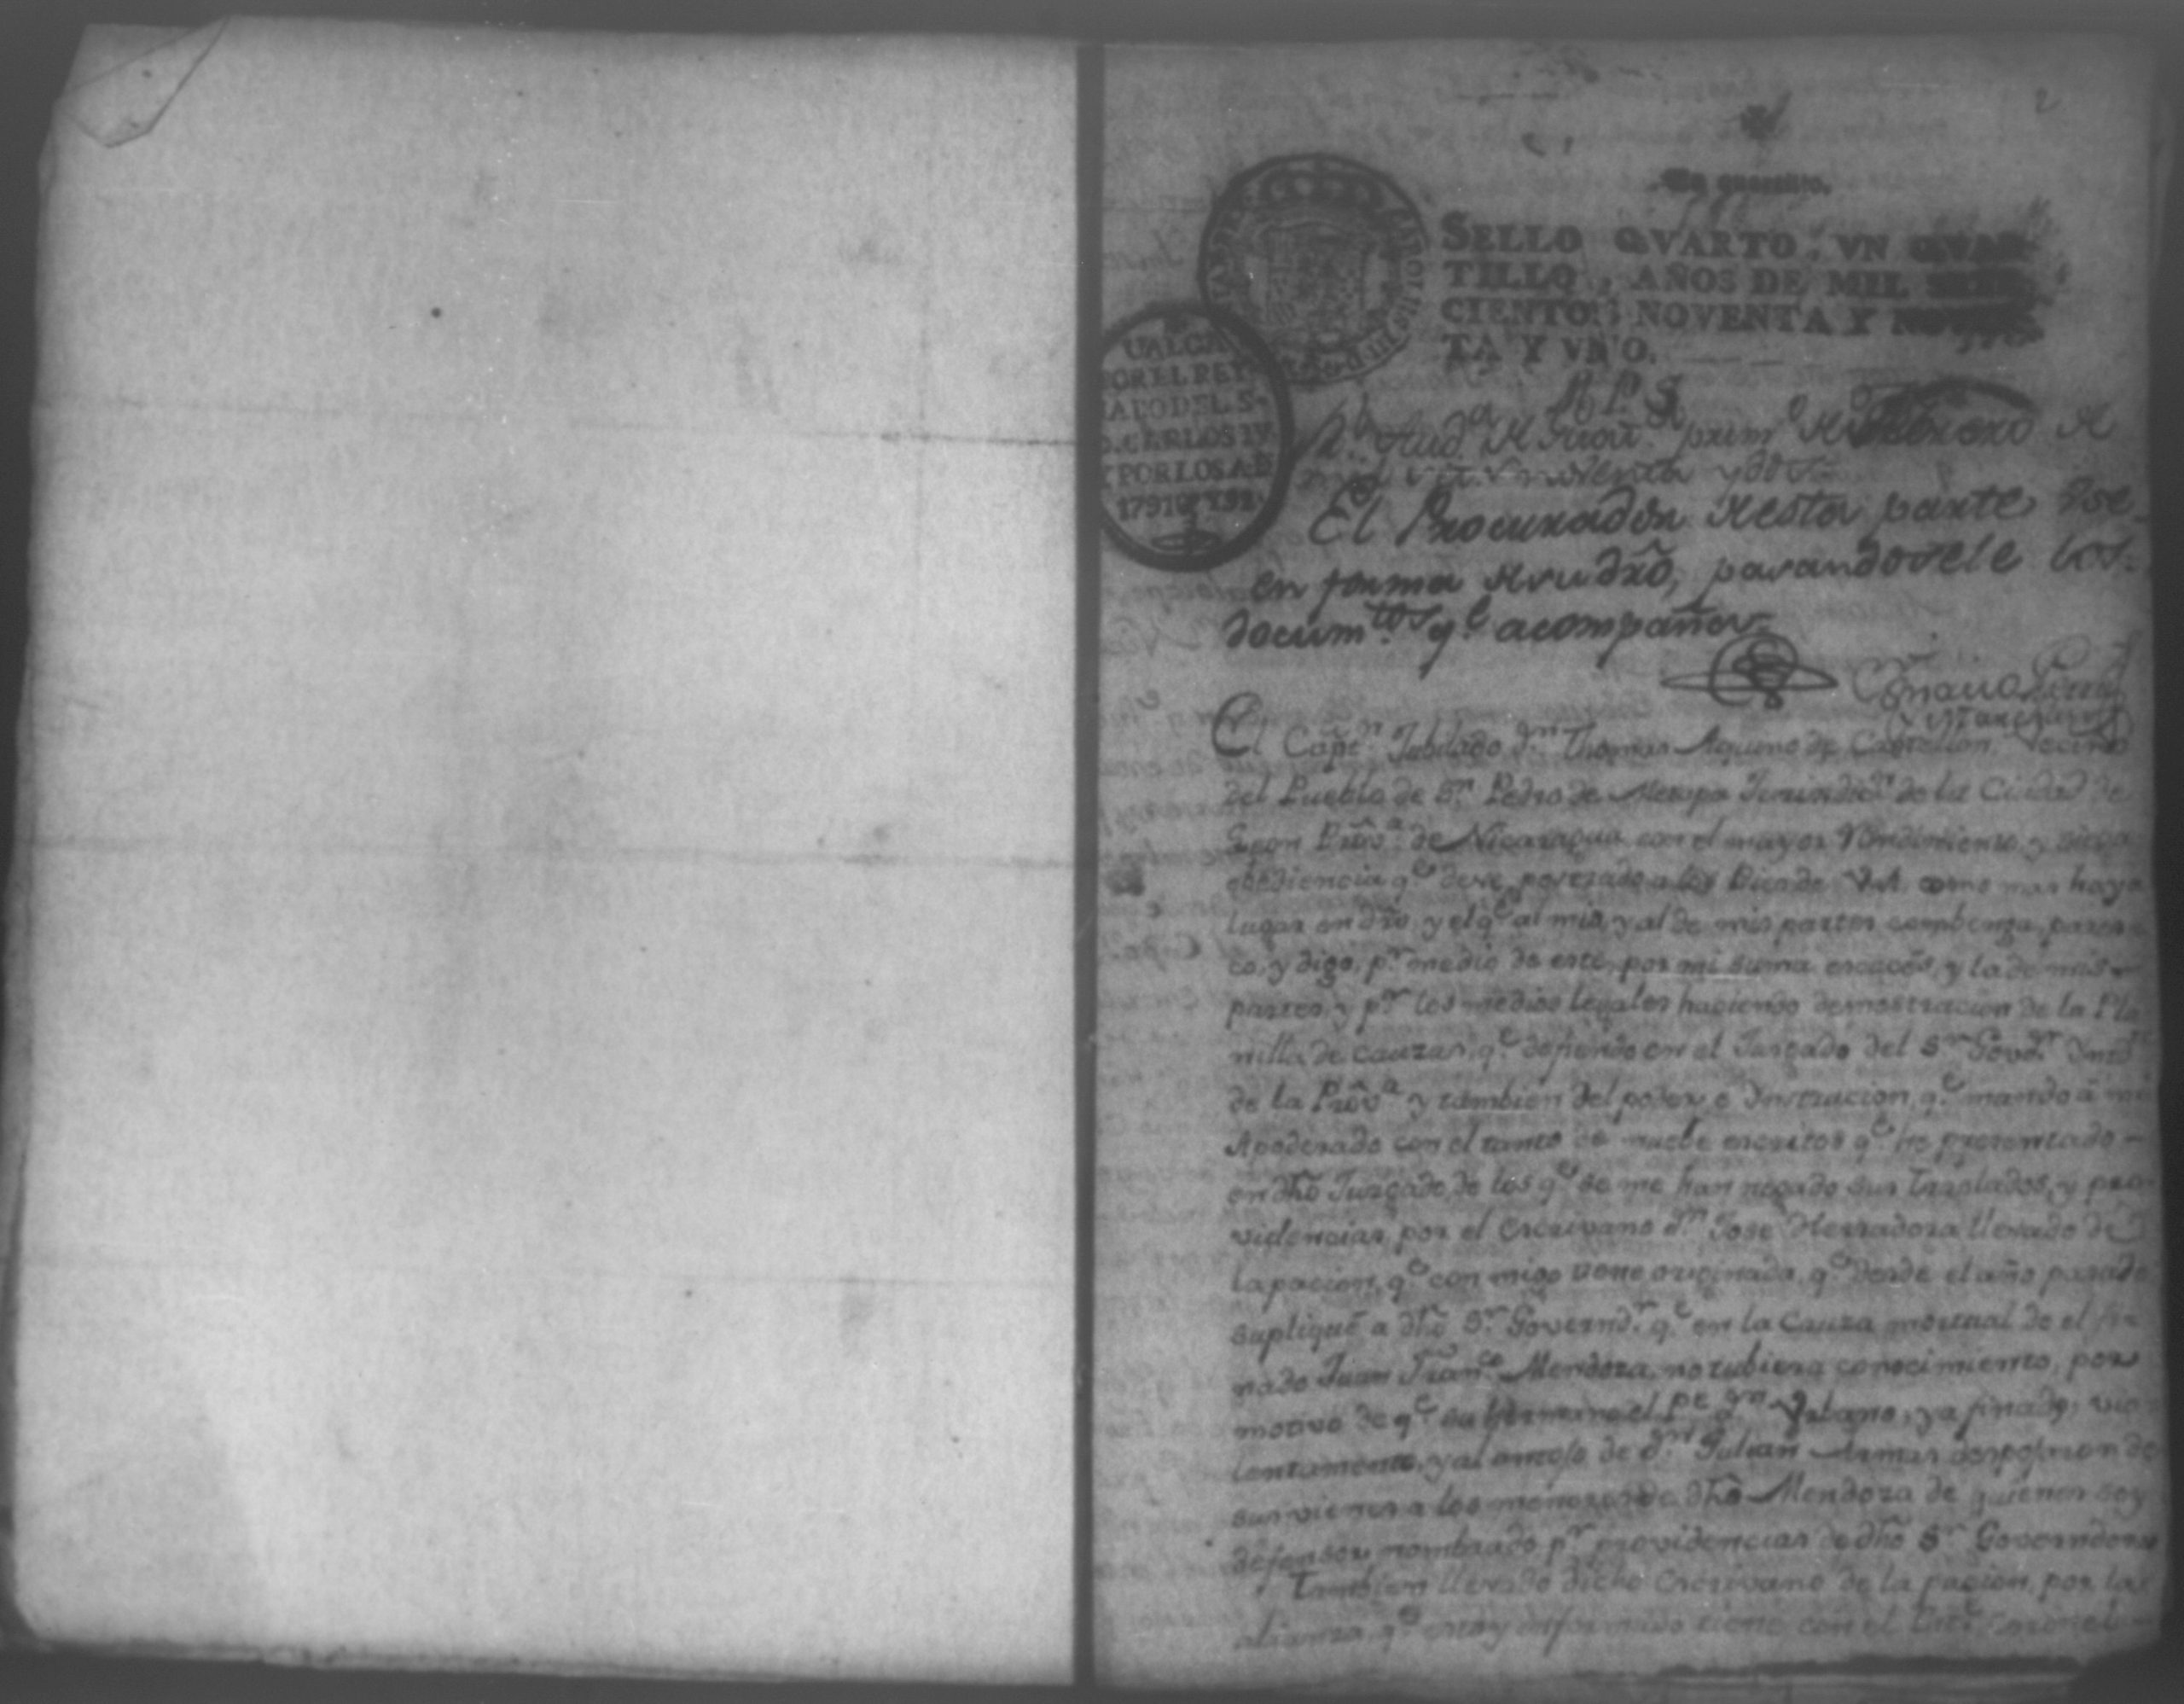 2
Un quartillo.
SELLO QVARTO, VN QVAR-
TILLO, AÑOS DE MIL SETE
CIENTOS NOVENTA Y NOVEN-
TA Y VNO.
UALGA
POR EL REY
NADO DEL S.
D. CARLOS IV.
Y POR LOS AS
1791 y 92
M. P. S.
prim.º Febrero
noventa y dos
El Procurador desta parte use
en forma de su dro, pasandosele los
docum.tos q.e acompaña
El Cap.n Jubilado d.n Thomas Aquino de Castellon, vecino
del Pueblo de S.n Pedro de Metapa Jurisdic.n de la Ciudad de
Leon Prov.a de Nicaragua con el mayor rendimiento, y
obediencia q.e deve postrado a los Pies de V.A. como mas haya
lugar en dro, y el q.e al mio, y al de mis partes combenga, pares-
co, y digo, p.r medio de este, por mi suma y la de mis
partes, y p.r los medios legales haciendo demostracion de la Pla
nilla de cauzas, q.e defiendo en el Juzgado del S.or Gov.or Int.
de la Prov.a y tambien del poder, e Instrucion, q.e mando â mi
Apoderado con el tanto de nuebe escritos q.e he presentado
en dho Juzgado, de los q.e se me han negado sus traslados, y pro-
videncias, por el Escrivano d.n Jose Herradora llevado de
la pacion, q.e con migo tiene originada, q.e desde el año pasado
supliqué a dho S.r Governd.r q.e en la Cauza mortual de el fi-
nado Juan Fran.co Mendoza, no tubiera conocimiento, por
motivo de q.e su hermano el P.e d.n Urbano, ya finado, vio-
lentamente, y al de d.n Julian Armas despojaron de
sus vienes a los menores de dho Mendoza de quienes soy
defensor nombrado p.r providencias de dho S.or Governador
Tambien llevado dicho Escrivano de la pacion, por la
alianza q.e estoy informado tiene con el